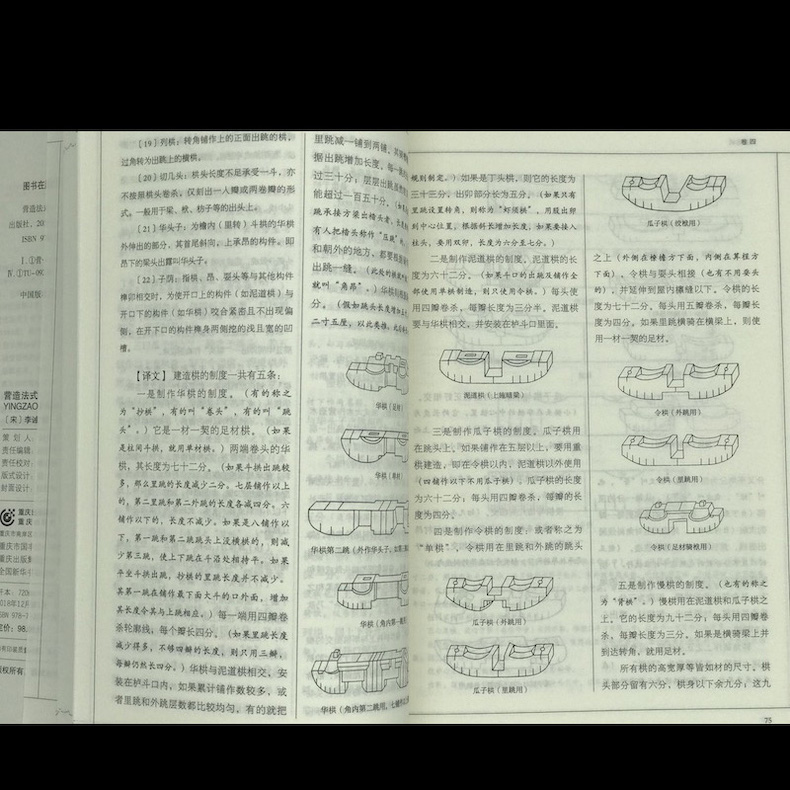 图书在
营造法
出版社，20
ISBN 9
Ⅰ.①营
Ⅳ.①TU-09
中国版
营造法式
YINGZAO
〔宋〕李诫
策 划 人
责任编辑
责任校对
版式设计
封面设计
重庆
重庆
重庆市南岸区
重庆市国丰
重庆出版集
全国新华书
开本：720
2018年12月
ISBN 978-7
定价：98.
版权所有
［19］列栱：转角铺作上的正面出跳的栱，
过角转为出跳上的横栱。
［20］切几头：栱头长度不足承受一斗，亦
不按照栱头卷杀，仅刻出一入瓣或两卷瓣的形
式。一般用于梁、栿、枋子等的出头上。
［21］华头子：为槽内（里转）斗栱的华栱
外伸出的部分，其首尾斜向，上承昂的构件。即
昂下的梁头出露叫华头子。
［22］子荫：指栱、昂、耍头等与其他构件
榫卯相交时，为使开口上的构件（如泥道栱）与
开口下的构件（如华栱）咬合紧密且不出现偏
侧，在开下口的构件榫身两侧挖的浅且宽的凹
槽。
【译文】 建造栱的制度一共有五条：
一是制作华栱的制度。（有的称之
为“抄栱”，有的叫“卷头”，有的叫“跳
头”。）它是一材一契的足材栱。（如果
是柱间斗栱，就用单材栱。）两端卷头的华
栱，其长度为七十二分。（如果斗栱出跳较
多，那么里跳的长度减少二分。七层铺作以上
的，第二里跳和第二外跳的长度各减四分。六
铺作以下的，长度不减少。如果是八铺作以
下，第一跳和第二跳跳头上没横栱的，则减
少第三跳，使上下跳在斗沿处相持平。如果
平坐斗栱出跳，抄栱的里跳长度并不减少。
其第一跳在铺作最下面大斗的口外面，增加
其长度令其与上跳相应。）每一端用四瓣卷
杀轮廓线，每个瓣长四分。（如果里跳长度
减少得多，不够四瓣的长度，则只用三瓣，
每瓣仍然长四分。）华栱与泥道栱相交，安
装在栌斗口内，如果累计铺作数较多，或
者里跳和外跳层数都比较均匀，有的就把
里跳减一铺到两铺，其
据出跳增加长度，每一跳
过三十分；层层出跳虽
能超过一百五十分。（如
跳承接方梁出楷头者，长度
有人把楷头称作“压跳”。
和朝外的地方，都要根据
出跳一缝。（此处的栱就
就叫“角昂”。）华栱则根据
分。（假如跳头长度增加五
二寸五厘，以此类推，
华栱（足材）
华栱（单材）
华栱第二跳（外作华头子，如第二跳
华栱（角内第一跳用
华栱（角内第二跳用，七铺作以
卷四
规则制定。）如果是丁头栱，则它的长度为
三十三分，出卯部分长为五分。（如果只有
里跳设置斜角，则称为“虾须栱”，用股出卯
到中心位置，根据斜长增加长度。如果要接入
柱头，要用双卯，长度为六分至七分。）
二是制作泥道栱的制度。泥道栱的长
度为六十二分。（如果斗口的出跳及铺作全
部使用单栱制造，则只使用令栱。）每头使
用四瓣卷杀，每瓣长度为三分半。泥道栱
要与华栱相交，并安装在栌斗口里面。
泥道栱（上施暗梁）
三是制作瓜子栱的制度。瓜子栱用
在跳头上。如果铺作在五层以上，要用重
栱建造，即在令栱以内，泥道栱以外使用
（四铺作以下不用瓜子栱）。瓜子栱的长度
为六十二分；每头用四瓣卷杀，每瓣的长
度为四分。
四是制作令栱的制度。或者称之为
“单栱”，令栱用在里跳和外跳的跳头
瓜子栱（外跳用）
瓜子栱（里跳用）
瓜子栱（绞栿用）
之上（外侧在橑檐方下面，内侧在算程方
下面）。令栱与耍头相接（也有不用耍头
的），并延伸到屋内槫缝以下。令栱的长
度为七十二分。每头用五瓣卷杀，每瓣长
度为四分。如果里跳横骑在横梁上，则使
用一材一契的足材。
令栱（外跳用）
令栱（里跳用）
令栱（足材骑栿用）
五是制作慢栱的制度。（也有的称之
为“肾栱”。）慢栱用在泥道栱和瓜子栱之
上。它的长度为九十二分；每头用四瓣卷
杀，每瓣长度为三分。如果是骑横梁上并
到达转角，就用足材。
所有栱的高宽厚等皆如材的尺寸。栱
头部分留有六分，栱身以下杀九分，这九
75